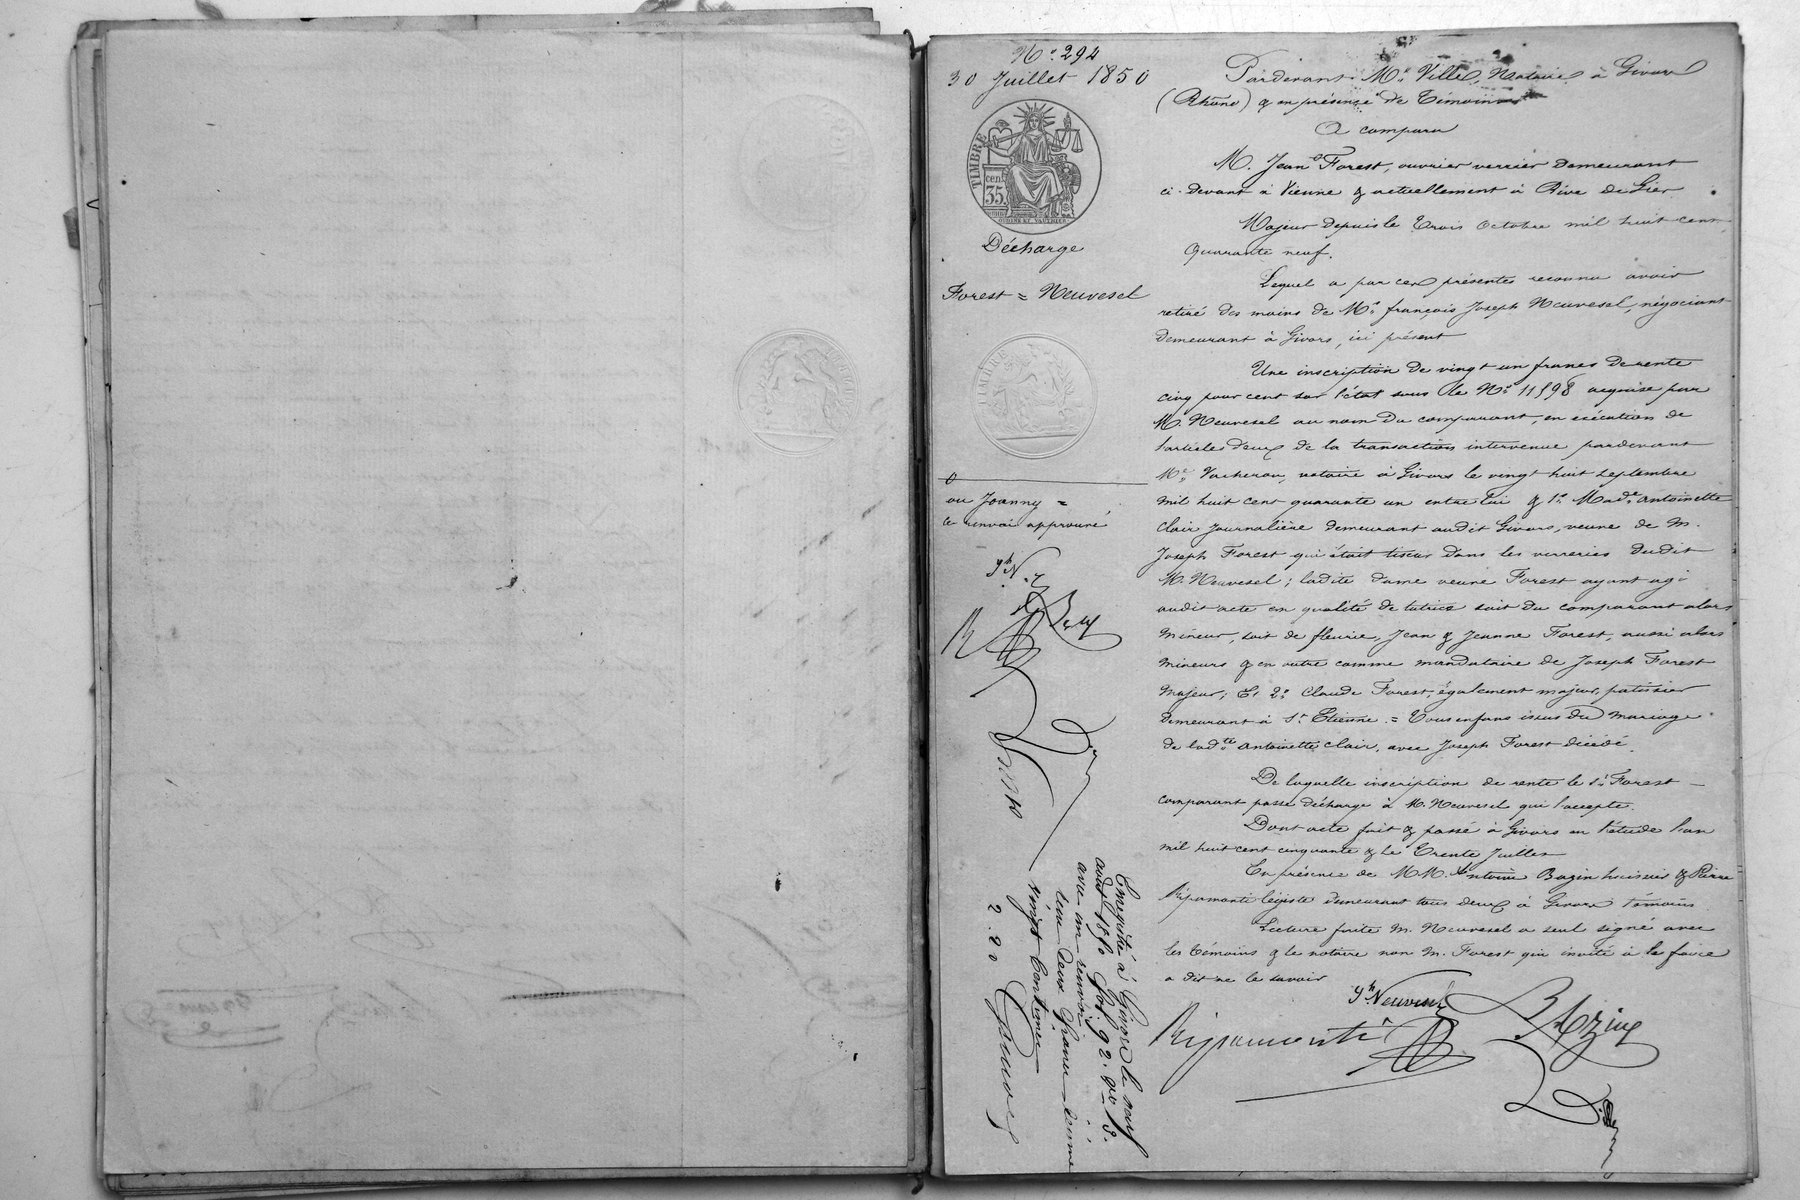 N.° 294
30 Juillet 1850
TIMBRE
cen.
35.
Décharge
Forest = Neuvesel
TIMBRE
ou Joanny =
ce renvoi approuvé
Jh N.
Pardevant Me. Ville, Notaire à Givors
(Rhône) & en présence de Témoins
A comparu
M. Jean Forest, ouvrier verrier demeurant
ci-devant à Vienne & actuellement à Rive de Gier
Majeur depuis le trois octobre mil huit cent
quarante neuf.
Lequel a par ces présentes reconnu avoir
retiré des mains de Mr. françois Joseph Neuvesel, négociant
demeurant à Givors, ici présent
Une inscription de vingt un francs de rente
cinq pour cent sur l'état sous le No. 11598 acquise par
M. Neuvesel au nom du comparant, en exécution de
l'article deux de la transaction intervenue pardevant
Me. Vacheron, notaire à Givors le vingt huit septembre
mil huit cent quarante un entre lui & 1o. Made. antoinette
Clair Journalière demeurant audit Givors, veuve de M.
Joseph Forest qui était tiseur dans les verreries dudit
M. Neuvesel; ladite dame veuve Forest ayant agi
audit acte en qualité de tutrice soit du comparant alors
mineur, soit de fleurie, Jean & Jeanne Forest, aussi alors
mineurs & en outre comme mandataire de Joseph Forest
majeur; Et 2o. Claude Forest, également majeur, patissier
demeurant à St. Etienne. = Tous enfans issus du mariage
de ladte. antoinette Clair, avec Joseph Forest décédé.
De laquelle inscription de rente le Sr. Forest
comparant passe décharge à M. Neuvesel qui l'accepte.
Dont acte fait & passé à Givors en l'étude l'an
mil huit cent cinquante & le trente Juillet
En présence de MM. Antoine Bazin huissier & Pierre
Ripamonti légiste demeurant tous deux à Givors témoins
Lecture faite M. Neuvesel a seul signé avec
les témoins & le notaire non M. Forest qui invité à le faire
a dit ne le savoir
Jh Neuvesel
Bazin
Ripamonti
Enregistré à Givors le neuf
août 1850 fol 92. vo
avec un renvoi
reçu deux francs
vingt centimes
2.20